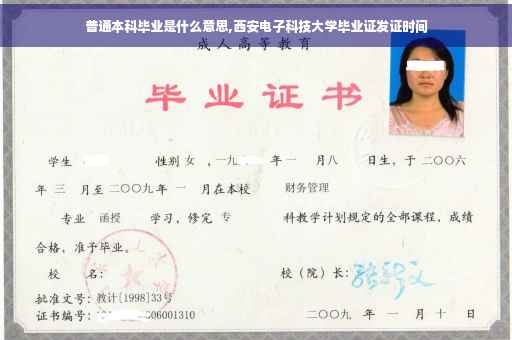 普通本科毕业是什么意思,西安电子科技大学毕业证发证时间
成人高等教育
毕业证书
学生 性别 女 ,一九 年 一 月八 日生，于 二〇〇六
年 三 月至 二〇〇九 年 一 月在本校 财务管理
专业 函授 学习，修完 专 科教学计划规定的全部课程，成绩
合格，准予毕业。
校 名： 校（院）长：
批准文号：教计[1998]33号
证书编号： 06001310 二〇〇九 年 一 月 十 日